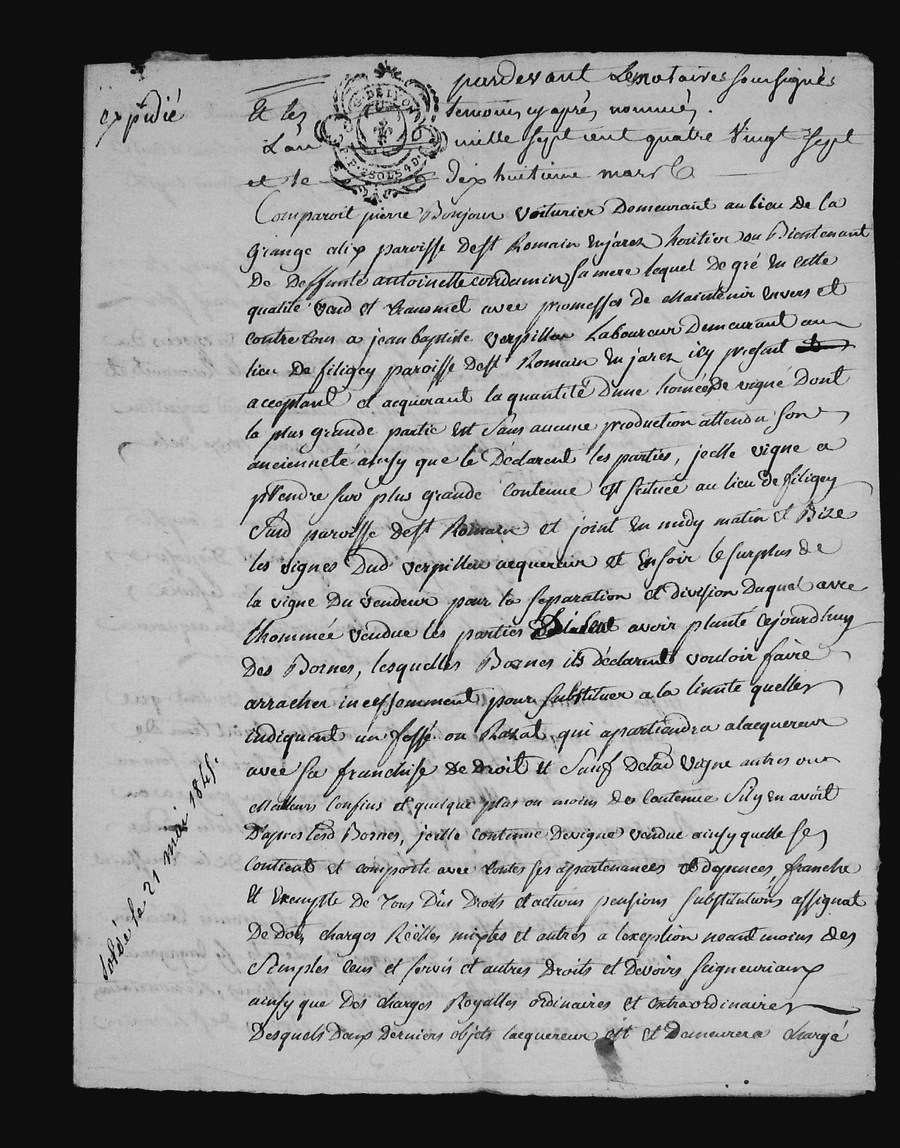 expédié
pardevant Le notaires soussignés
Et les temoins cyaprès nommés.
G. DE LYON
2 SOLS 4 D
L'an mille sept cent quatre vingt sept
et le dix huitieme mars
Comparoit pierre Bonjour voiturier Demeurant au lieu de la
grange alix paroisse de st Romain en jarez heritier ou Bientenant
De Deffunte antoinette condamin sa mere lequel de gré En cette
qualité vend et transmet avec promesses de Maintenir Envers et
contre tous a jean baptiste verpilleu Laboureur Demeurant au
lieu De filigey paroisse de st Romain En jarez icy present
acceptant et acquerant la quantité d'une homée de vigne Dont
la plus grande partie est sans aucune production attendu son
ancienneté ainsy que le Déclarent les parties, jcelle vigne a
prendre sur plus grande contenue est scituée au lieu de filigey
susd paroisse de st Romain et joint En midy matin et Bize
les vignes Dud verpilleu acquereur et En soir le surplus de
la vigne Du vendeur pour la separation et division Duquel avec
l'hommée vendue les parties avoir planté cejourdhuy
Des Bornes, lesquelles Bornes ils déclarent vouloir faire
arracher incessemment pour substituer a la limite quelles
indiquent un fossé ou Razat qui apartiendra alacquereur
avec sa franchise de droit Et sauf delad vigne autres
Meilleurs confins et quelque plus ou moins de contenue sil y en avoit
D'apres lesd Bornes, jcelle contenue de vigne vendue ainsy quelle se
contient et comporte avec toutes ses apartenances et dependces, franche
Et Exempte de Tous Dus Droits et actions pensions substitutions assignat
De Dot, charges Réelles mixtes et autres a lexception neantmoins des
Simples cens et servis et autres Droits et Devoirs seigneuriaux
ainsy que Des charges Royalles ordinaires et extraordinaires
Desquels Deux Derniers objets lacquereur est et demeurera chargé
soldé le 21 mai 1845.